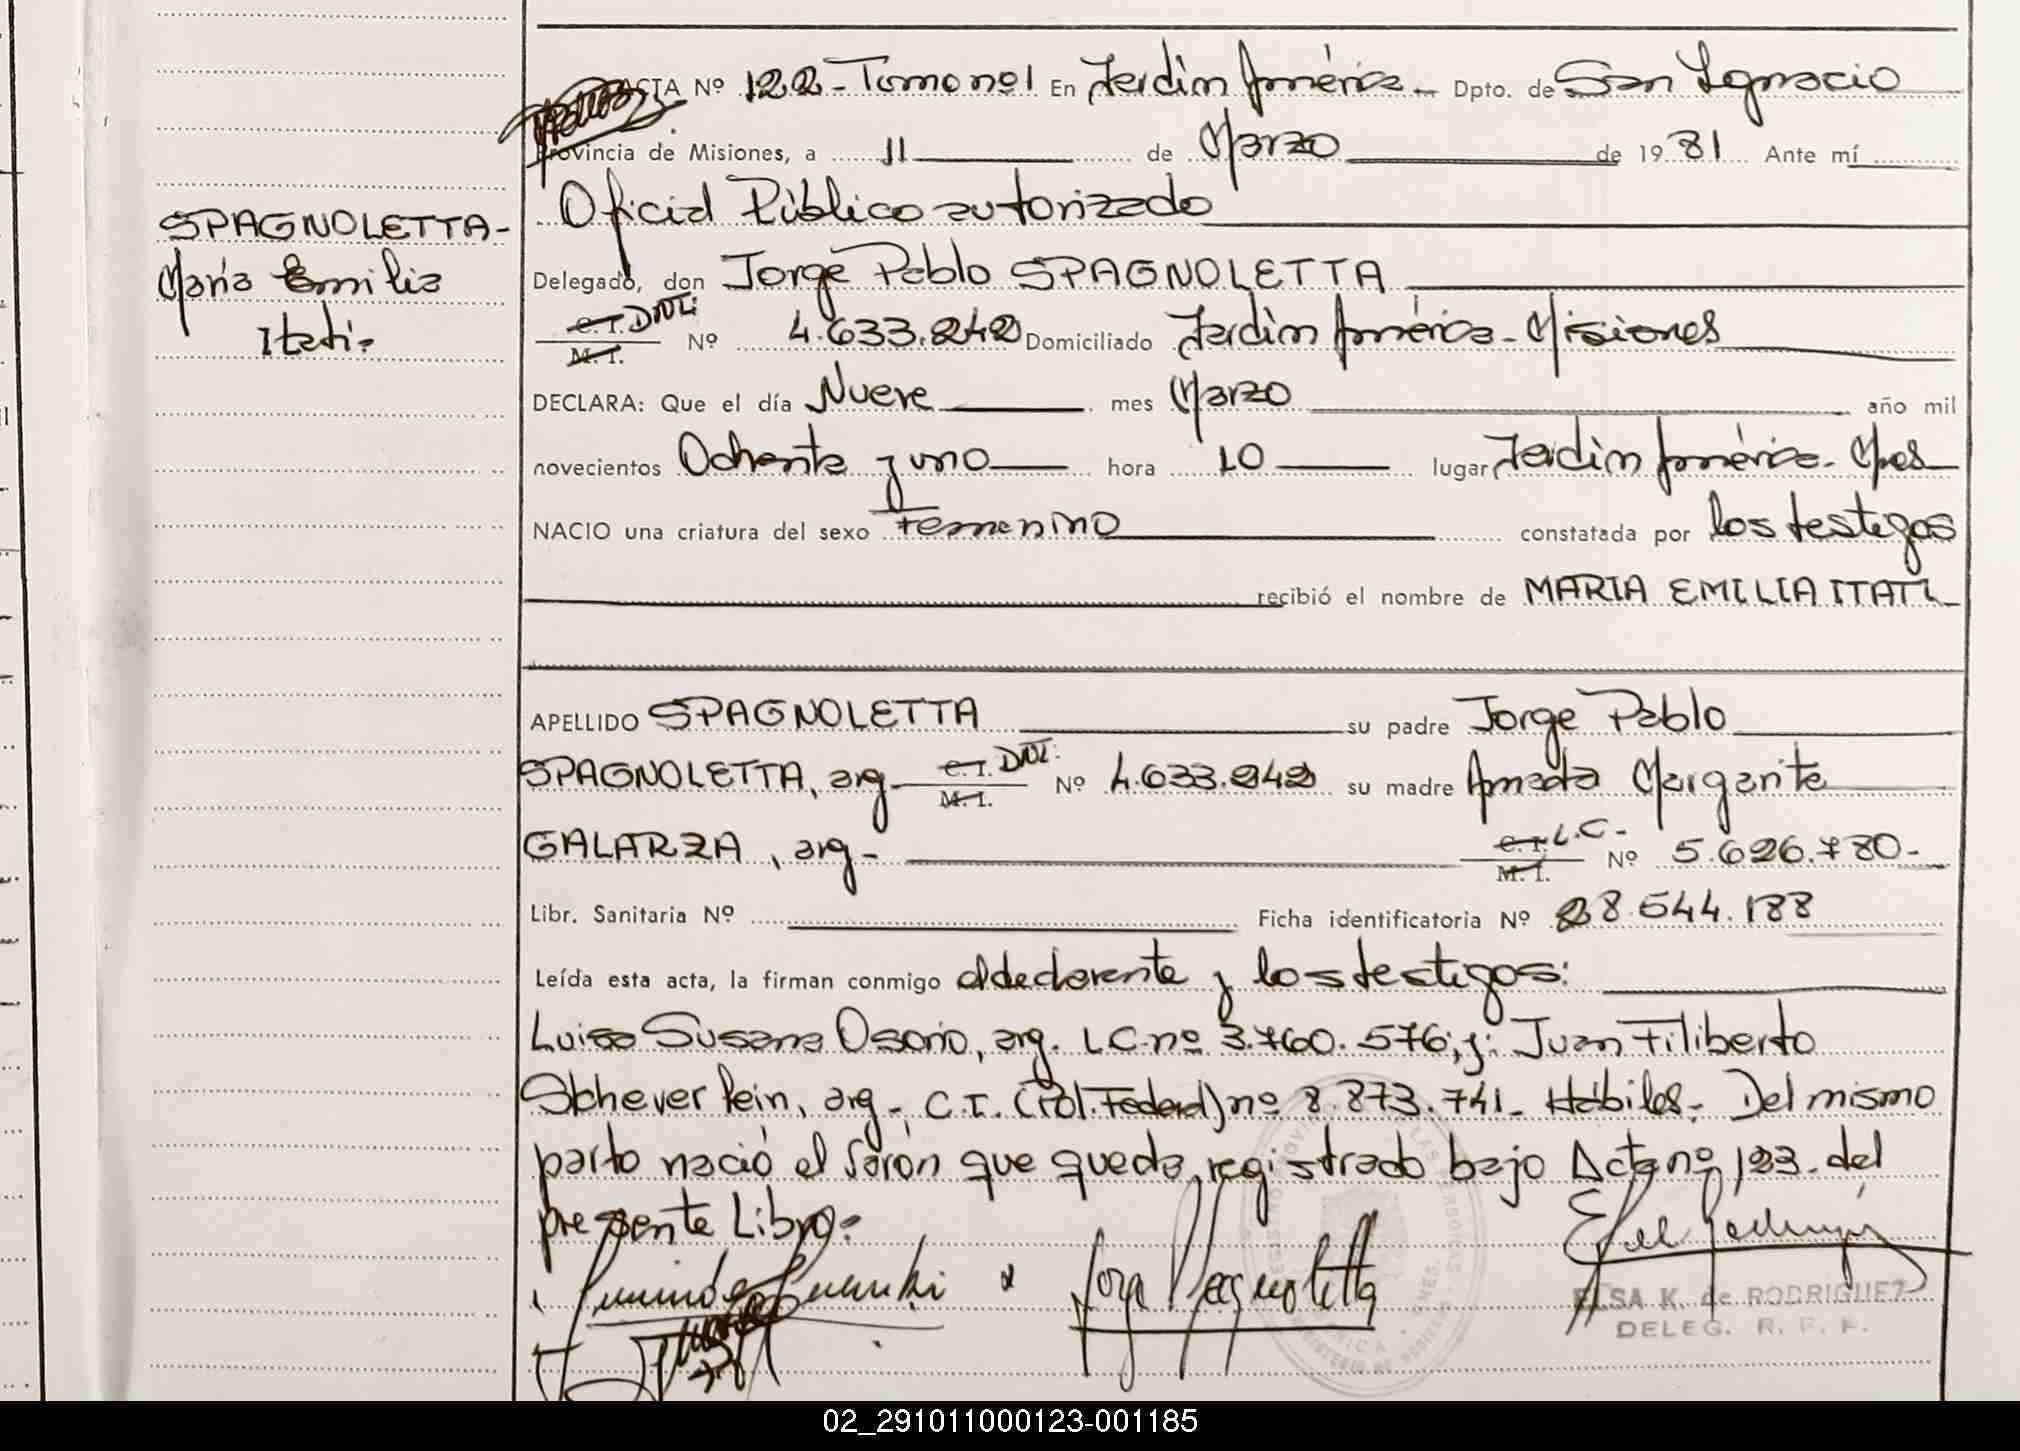 ACTA Nº 122 - Tomo nº 1 En Jardín América - Dpto. de San Ignacio
Provincia de Misiones, a 11 de Marzo de 1981 Ante mí
Oficial Público autorizado
SPAGNOLETTA -
María Emilia
Itatí.-
Delegado, don Jorge Pablo SPAGNOLETTA
C.I. DNI:
M.I. Nº 4.633.242 Domiciliado Jardín América - Misiones
DECLARA: Que el día Nueve mes Marzo año mil
novecientos Ochenta y uno hora 10 lugar Jardín América - Mnes
NACIO una criatura del sexo Femenino constatada por los testigos
recibió el nombre de MARIA EMILIA ITATI
APELLIDO SPAGNOLETTA su padre Jorge Pablo
SPAGNOLETTA, arg - C.I. DNI: M.I. Nº 4.633.242 su madre Amada Margarita
GALARZA, arg - C.I. L.C. - M.I. Nº 5.626.780 -
Libr. Sanitaria Nº Ficha identificatoria Nº 28.544.188
Leída esta acta, la firman conmigo el declarante y los testigos:
Luisa Susana Osorio, arg. L.C. nº 3.760.576; y: Juan Filiberto
arg - C.I. (Pol. Federal) nº 8.873.741 - Hábiles - Del mismo
parto nació el Varón que queda registrado bajo Acta nº 123 - del
presente Libro.-
ELSA K. de RODRIGUEZ
DELEG. R. P. P.
02_291011000123-001185